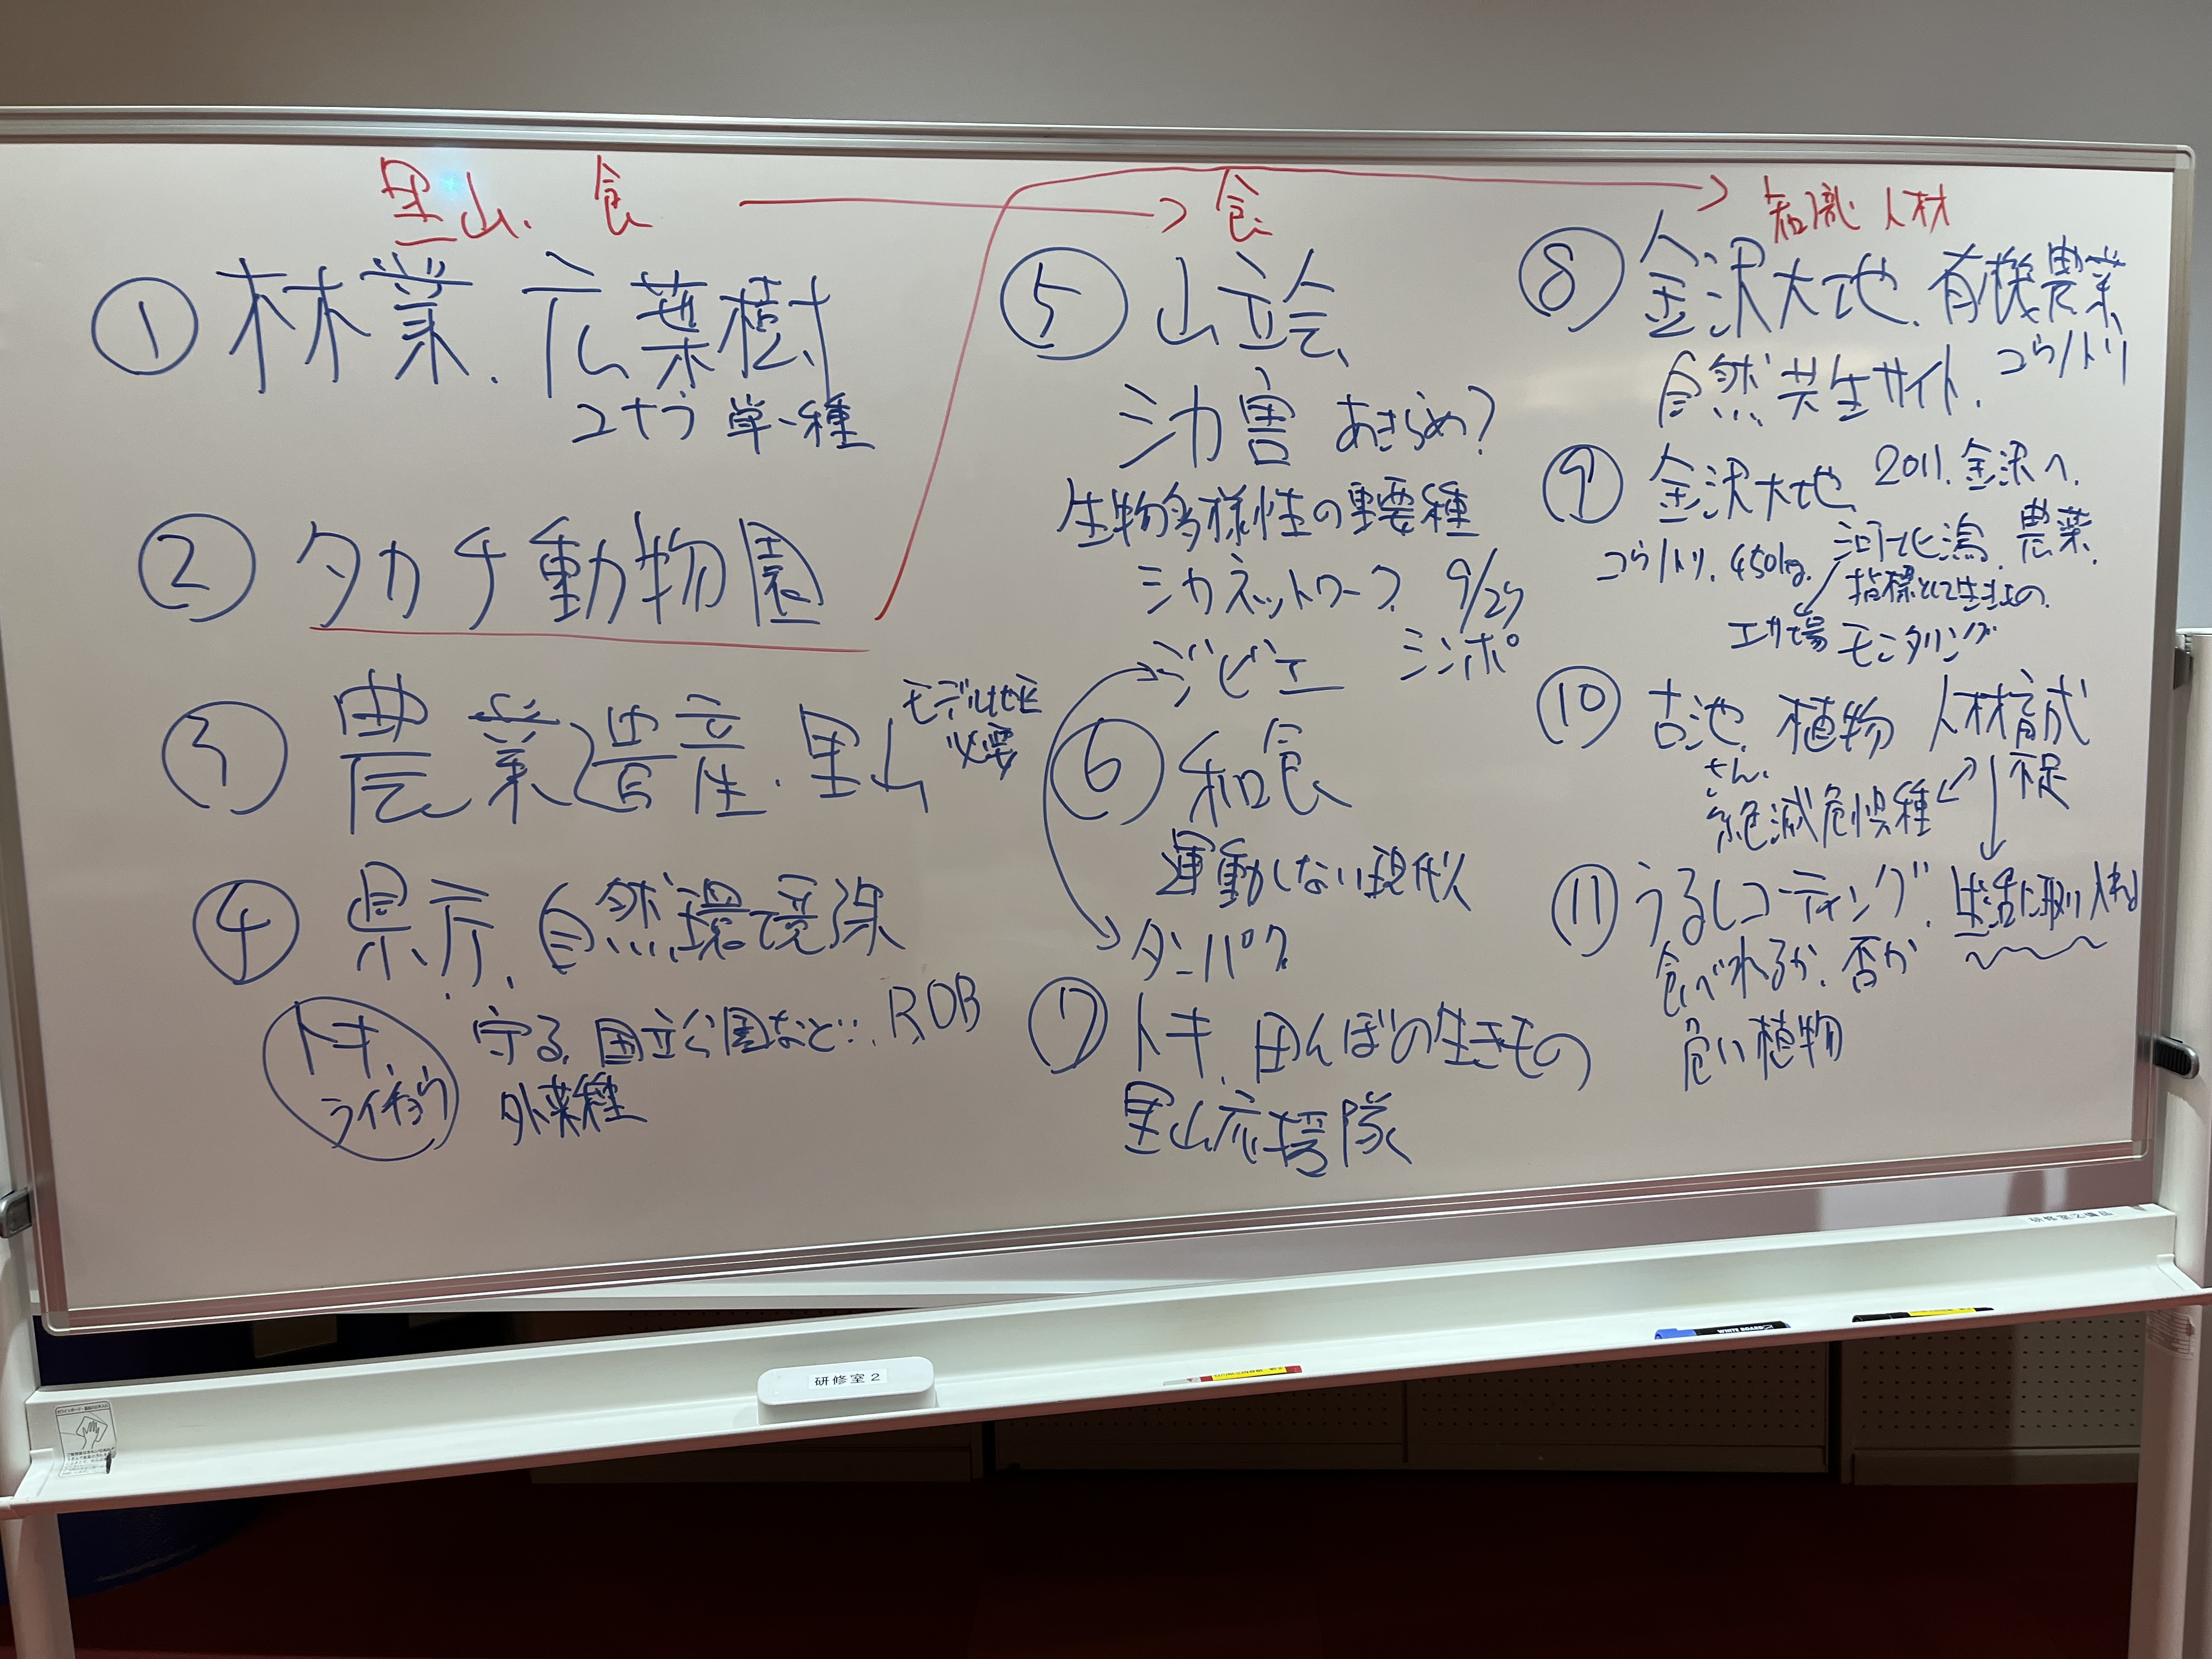 里山、食 → 食
→ 知識 人材
① 林業、広葉樹
コナラ 単一種
② タカチ動物園
③ 農業遺産・里山
モデル地区
必要
④ 県庁、自然環境課
トキ、
ライチョウ
守る、国立公園など… RDB
外来種
⑤ 山立会
シカ害 あきらめ?
生物多様性の重要種
シカネットワーク 9/27
ジビエ シンポ
⑥ 和食
運動しない現代人
タンパク
⑦ トキ、田んぼの生きもの
里山応援隊
⑧ 金沢大地、有機農業
自然共生サイト、コウノトリ
⑨ 金沢大地 2011.金沢へ.
コウノトリ.450kg. 河北潟、農業.
指標として生きもの.
工場 モニタリング
⑩ 古池 植物 人材育成
さん.
不足
絶滅危惧種
⑪ うるしコーティング、生活に取り入れる
食べれるか、否か
危い植物
研修室2備品
研修室2
WHITE BOARD